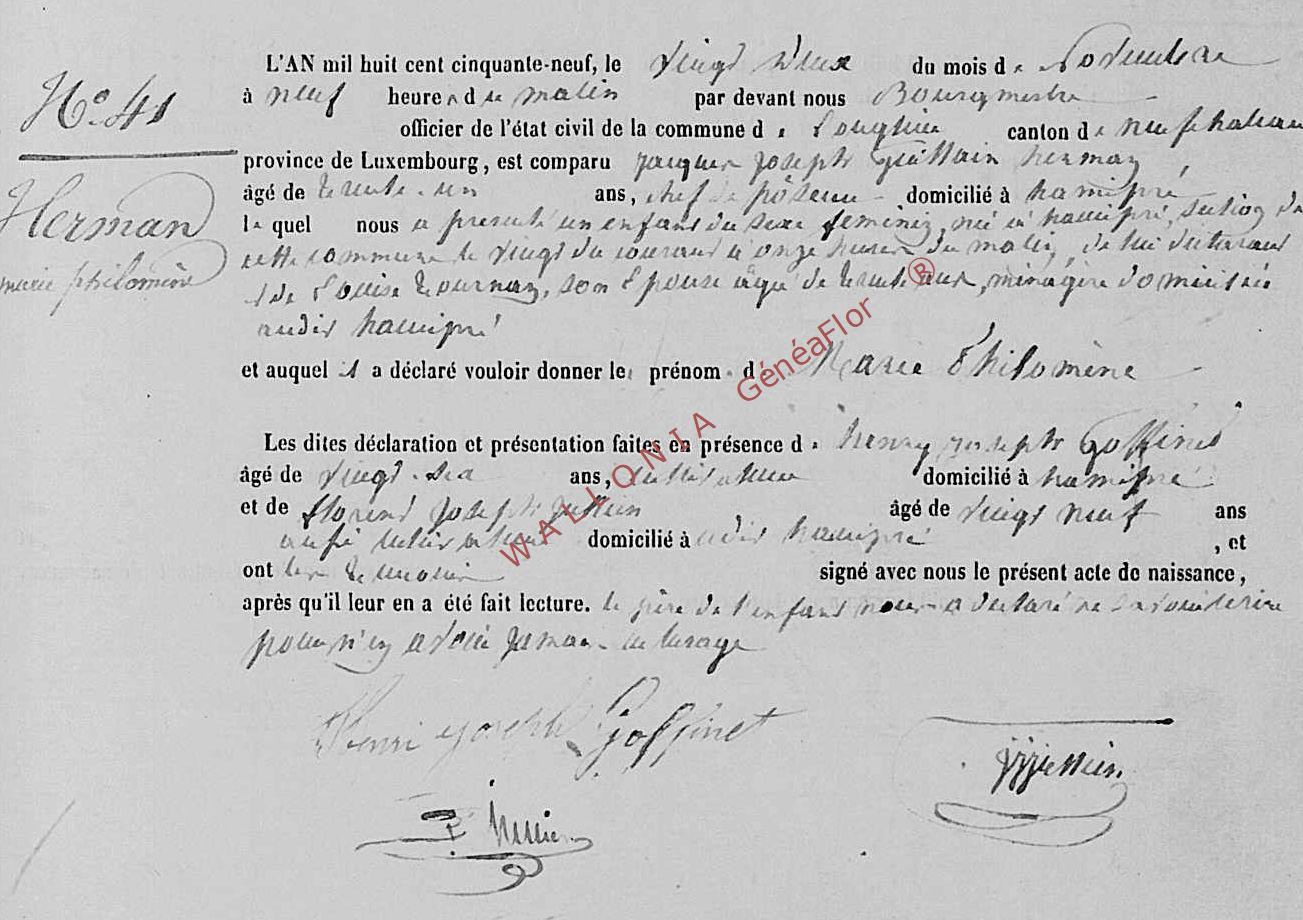 N.º 41
Herman
marie philomène
L'AN mil huit cent cinquante-neuf, le vingt deux du mois de Novembre
à neuf heures du matin par devant nous Bourgmestre
officier de l'état civil de la commune de Longlier canton de neufchateau
province de Luxembourg, est comparu jacques joseph Guillain herman,
âgé de trente-un ans, chef de domicilié à hamipré
le quel nous a presenté un enfant du sexe feminin, né à hamipré, section de
cette commune le vingt du courant à onze heures du matin, de lui déclarant
et de Louise Tournay, son Epouse agée de trente ans, ménagère domiciliée
audit hamipré
et auquel il a déclaré vouloir donner les prénoms de Marie Philomène
Les dites déclaration et présentation faites en présence de henry joseph Goffinet
âgé de vingt-six ans, cultivateur domicilié à hamipré
et de florent joseph âgé de vingt neuf ans
aussi cultivateur domicilié à udit hamipré, et
ont les temoins signé avec nous le présent acte de naissance,
après qu'il leur en a été fait lecture. le père de l'enfant nous a declaré ne savoir écrire
pour n'en avoir jamais eu l'usage
Henri joseph Goffinet
WALLONIA GénéaFlor ®